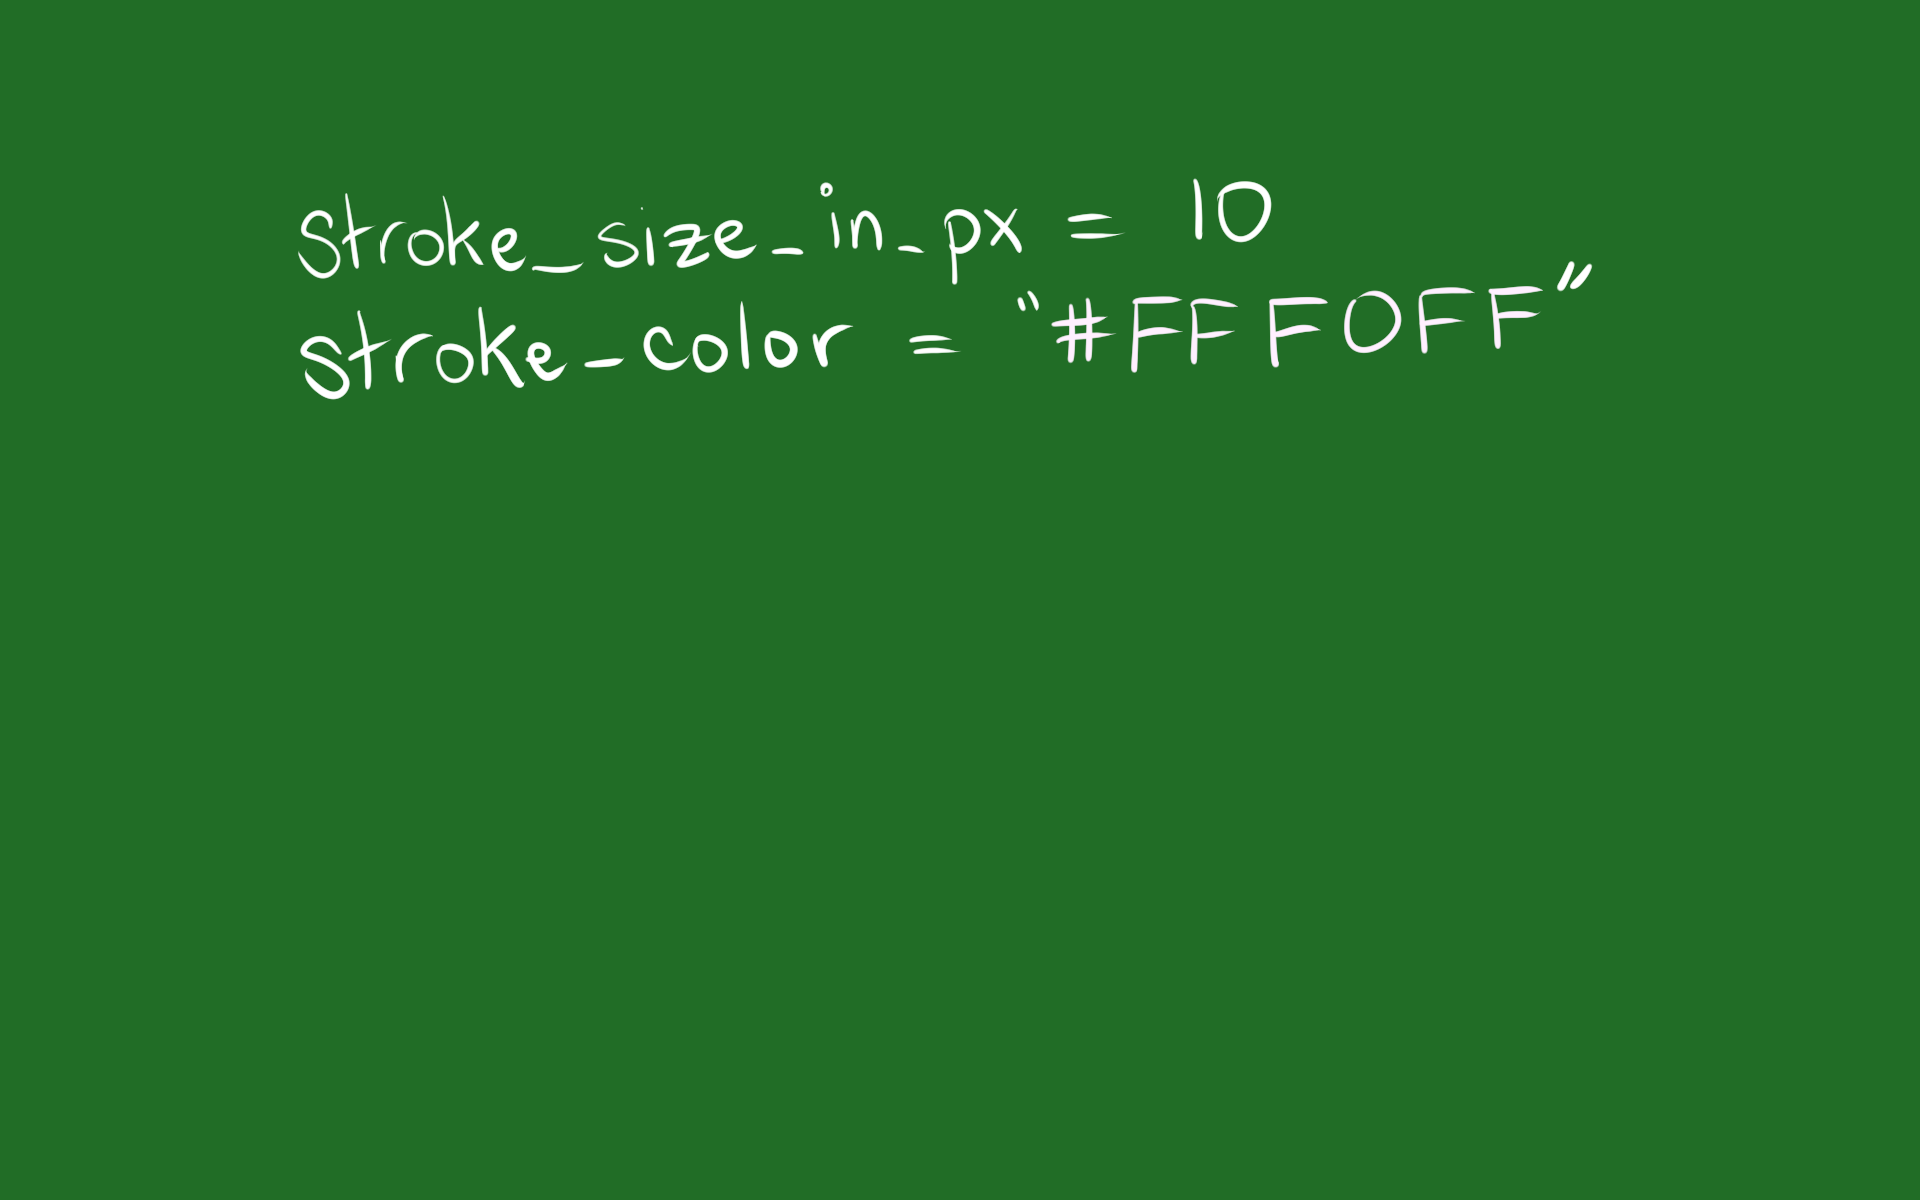 stroke_size_in_px = 10
stroke_color = "#FFF0FF"